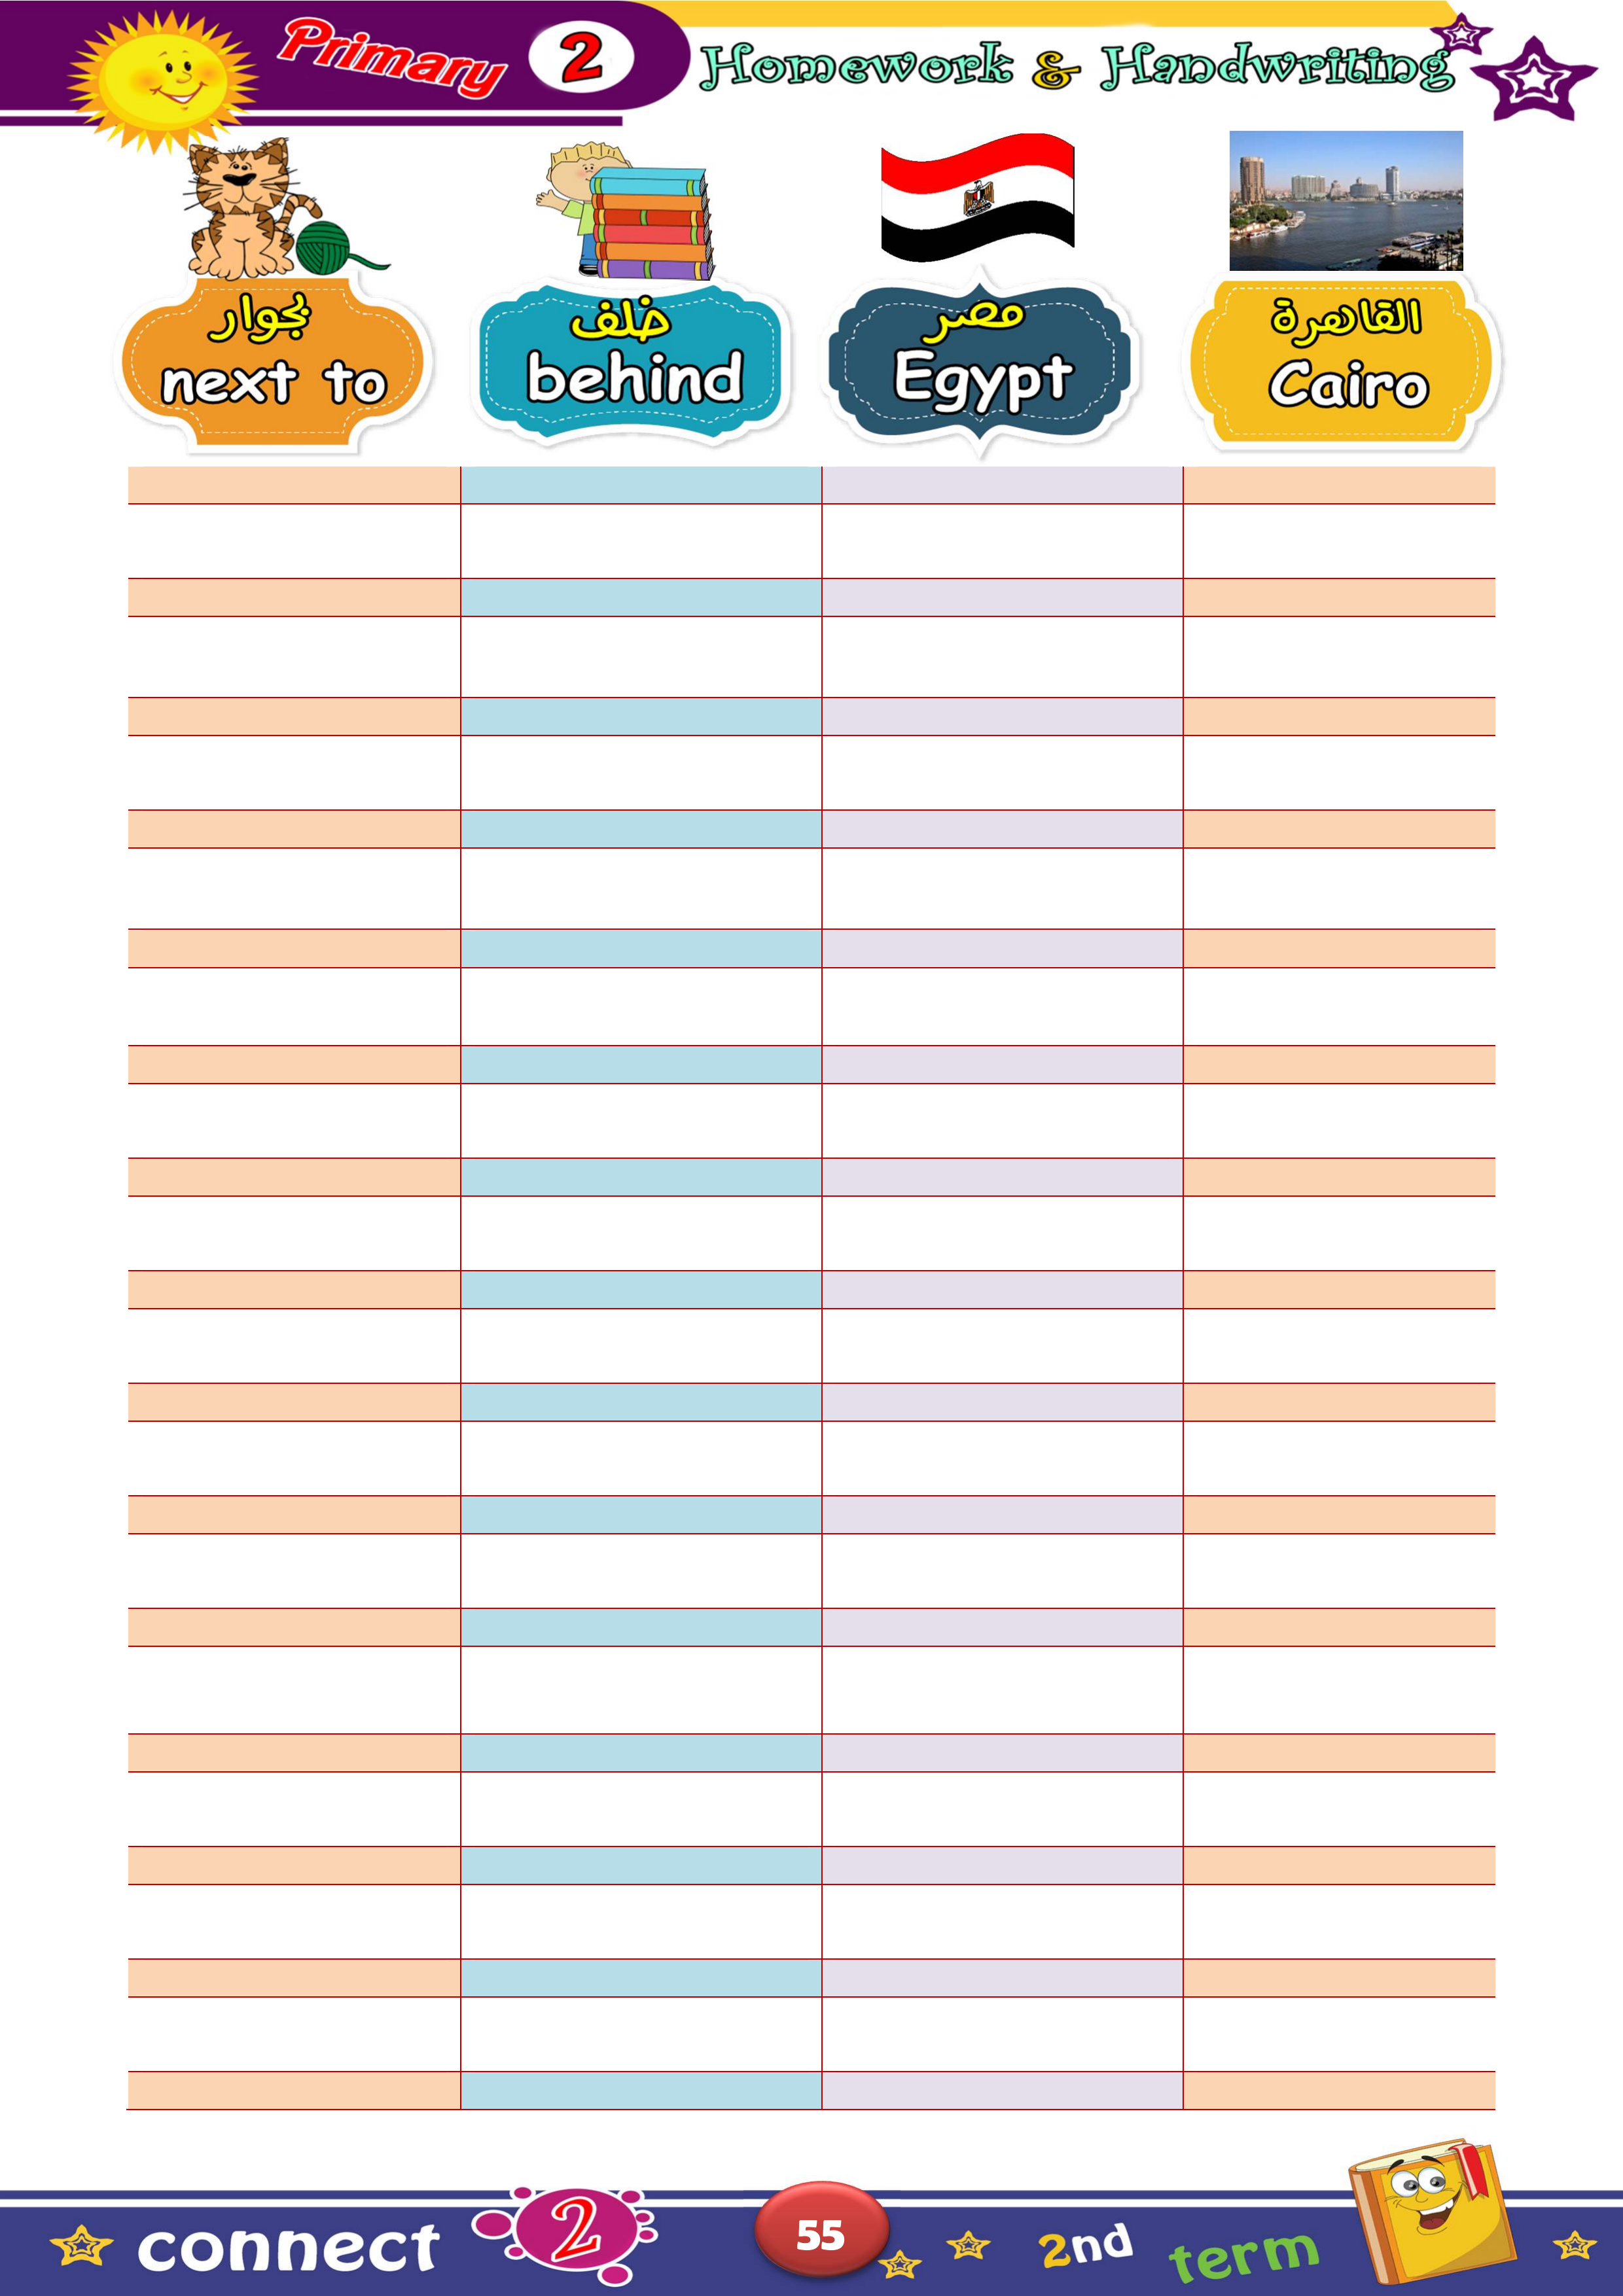 Primary 2 Homework & Handwriting
بجوار
next to
خلف
behind
مصر
Egypt
القاهرة
Cairo
connect 2 55 2nd term